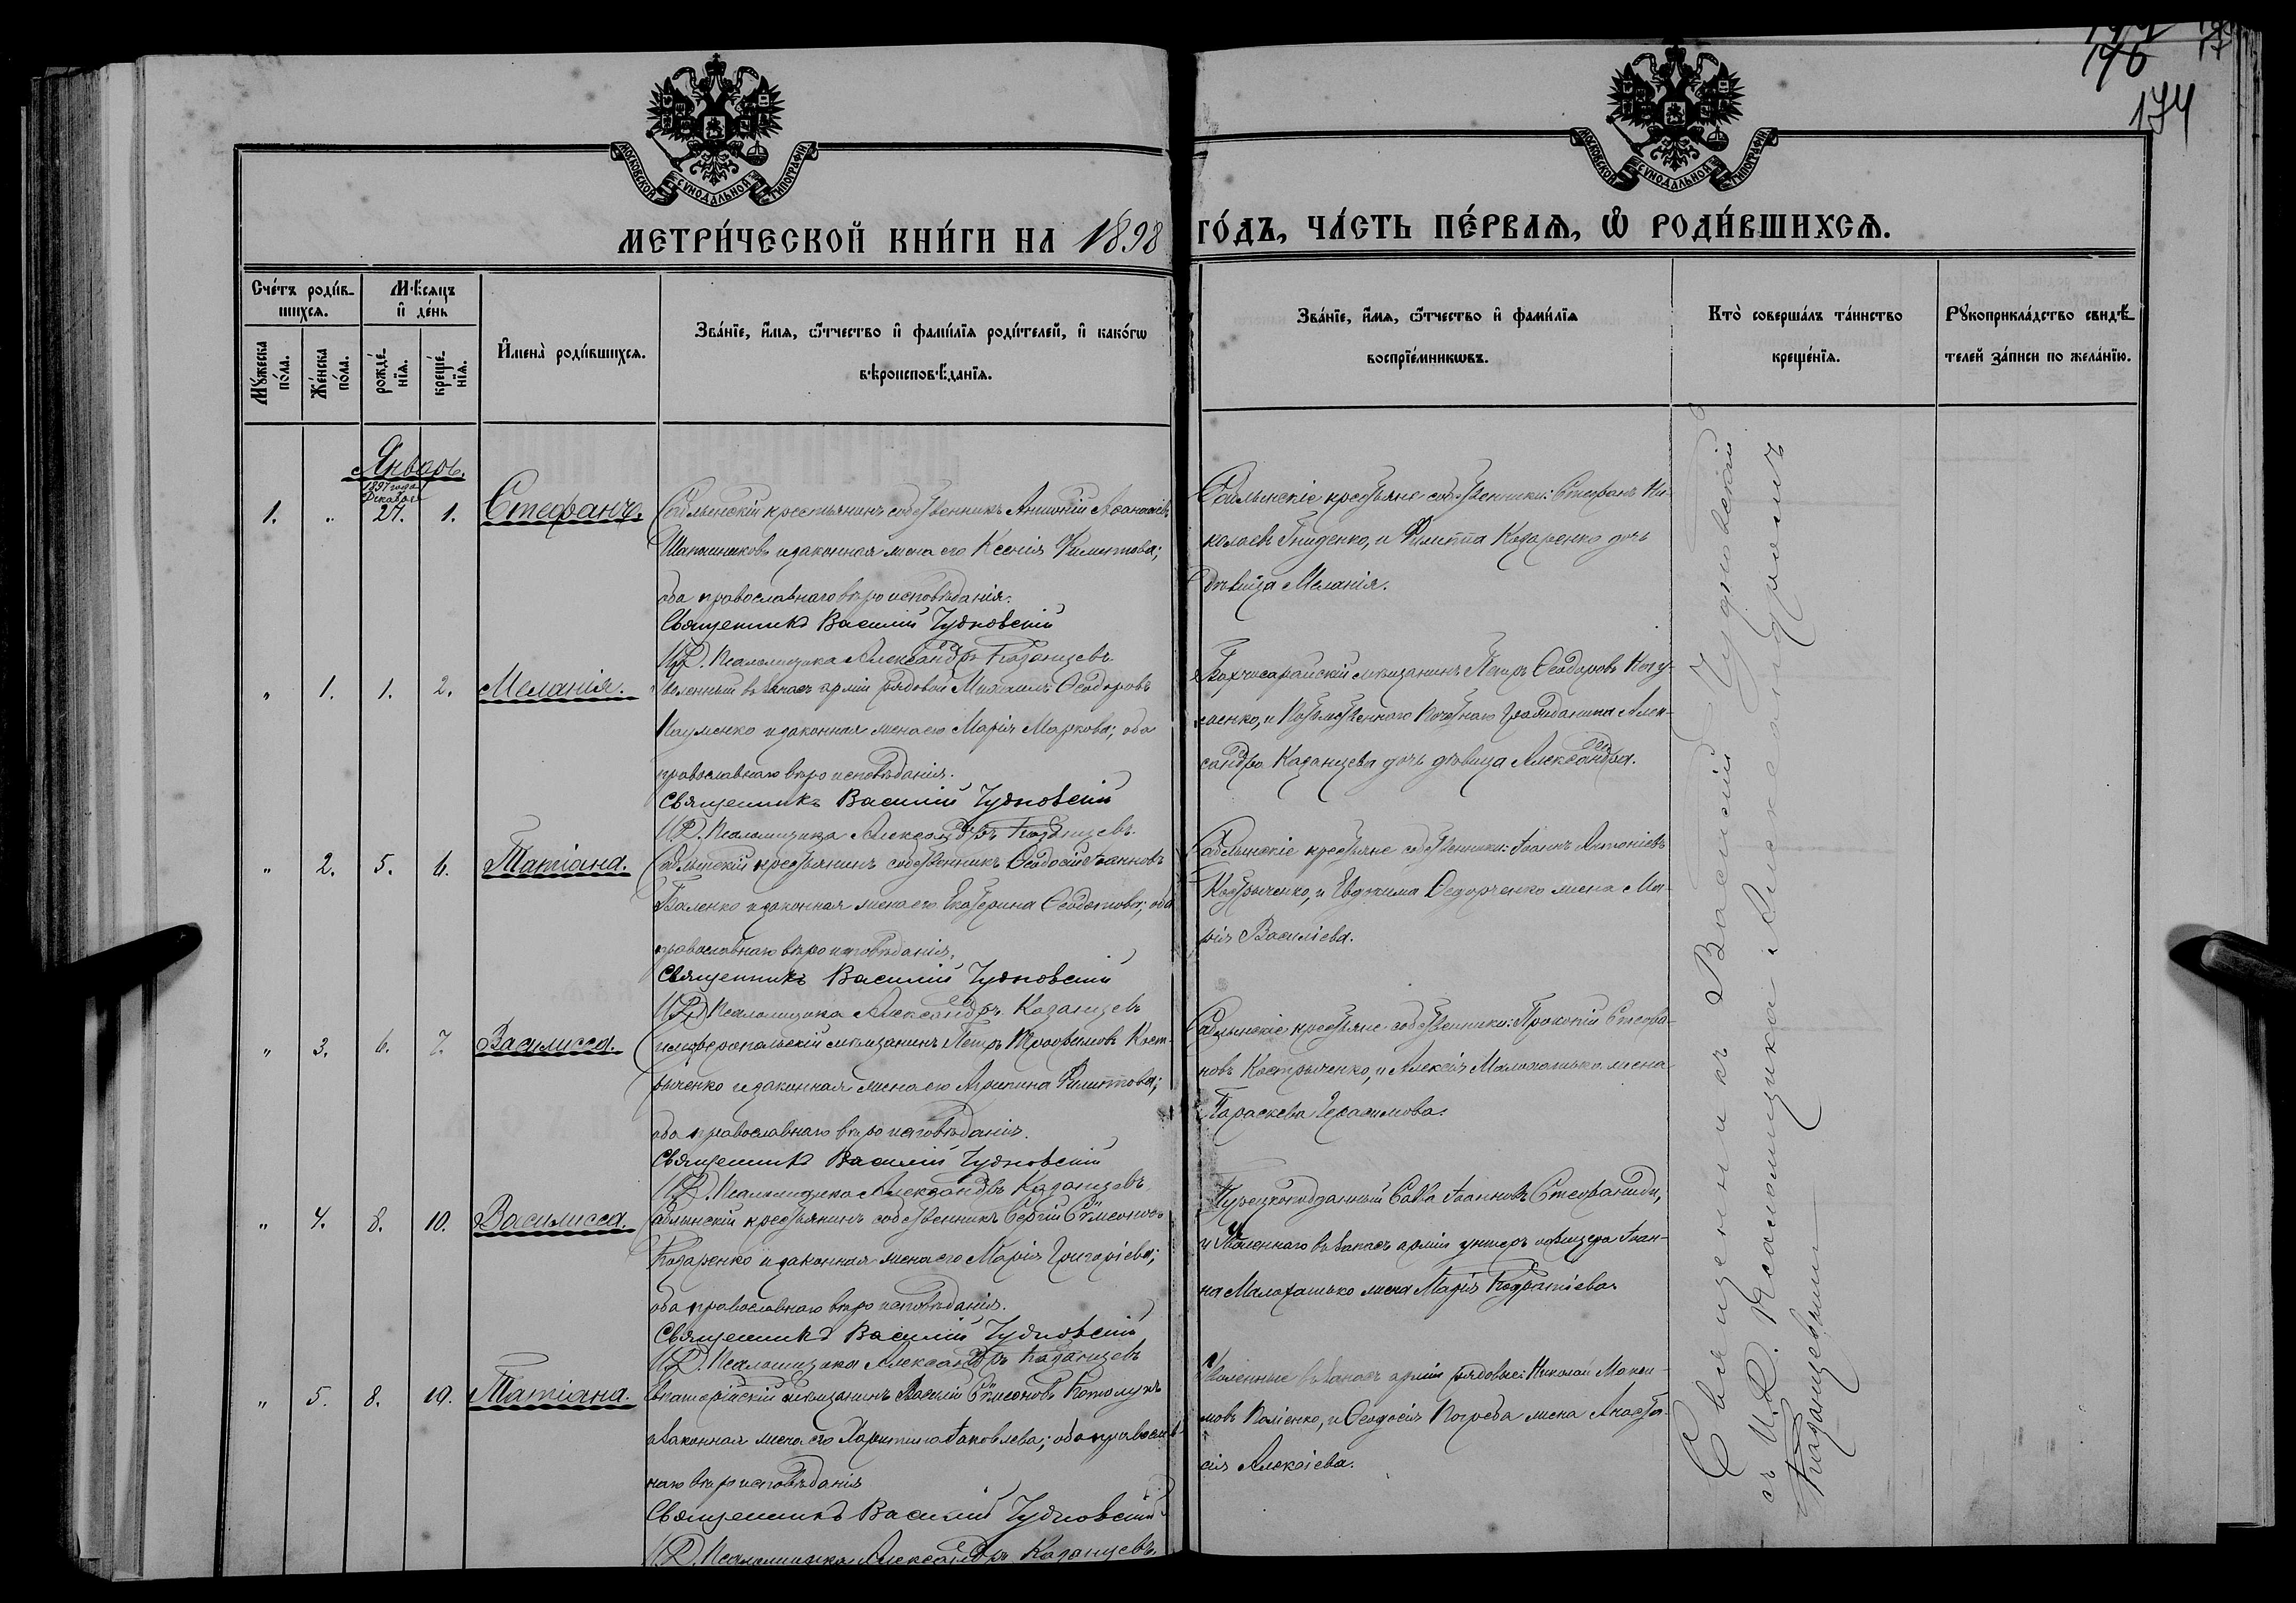 176
174
МОСКОВСКОЙ СѴНОДАЛЬНОЙ ТИПОГРАФІИ
МОСКОВСКОЙ СѴНОДАЛЬНОЙ ТИПОГРАФІИ
МЕТРИ́ЧЕСКОЙ КНИ́ГИ НА 1898 ГО́ДЪ, ЧА́СТЬ ПЕ́РВАѦ, Ѡ҆ РОДИ́ВШИХСѦ.
Сче́тъ роди́в-
шихсѧ.
Мꙋ́жеска
по́ла.
Же́нска
по́ла.
Мѣ́сѧцъ
и҆ де́нь
рожде́-
нїѧ.
креще́-
нїѧ.
И҆мена̀ роди́вшихсѧ.
Зва́нїе, и҆́мѧ, ѻ҆́тчество и҆ фами́лїѧ роди́телей, и҆ како́гѡ
вѣроисповѣ́данїѧ.
Зва́нїе, и҆́мѧ, ѻ҆́тчество и҆ фами́лїѧ
воспрїе́мникѡвъ.
Кто̀ соверша́лъ та́инство
креще́нїѧ.
Рꙋкоприкла́дство свидѣ́-
телей за́писи по жела́нїю.
Январь.
1897 года
Декабря
1. „ 27. 1. Стефанъ.
Саблынскій крестьянинъ собственникъ Антоній Аѳанасіевъ
и законная жена его Ксенія Филиппова;
оба православнаго вѣроисповѣданія.
Священникъ Василій Чудновскій
И. Д. Псаломщика Александръ Казанцевъ.
Саблынскіе крестьяне собственники: Стефанъ Ни-
колаевъ Гниденко, и Филиппа Козаренко дочь
дѣвица Меланія.
„ 1. 1. 2. Меланія.
Уволенный въ запасъ арміи рядовой Михаилъ Ѳеодоровъ
Науменко и законная жена его Марія Маркова; оба
православнаго вѣроисповѣданія.
Священникъ Василій Чудновскій
И. Д. Псаломщика Александръ Казанцевъ.
Бахчисарайскій мѣщанинъ Петръ Ѳеодоровъ
и Потомственнаго Почетнаго Гражданина Алек-
сандра Казанцева дочь дѣвица Александра.
„ 2. 5. 6. Татіана.
Саблынскій крестьянинъ собственникъ Ѳеодосій Іоанновъ
Баленко и законная жена его Екатерина Ѳеодотова; оба
православнаго вѣроисповѣданія.
Священникъ Василій Чудновскій
И. Д. Псаломщика Александръ Казанцевъ
Саблынскіе крестьяне собственники: Іоаннъ Антоніевъ
Костыченко, и Евдокима Ѳедорченко жена Ма-
рія Василіева.
„ 3. 6. 7. Василисса.
Симферопольскій мѣщанинъ Петръ Трофимовъ Кост-
рыченко и законная жена его Агрипина Филиппова;
оба православнаго вѣроисповѣданія.
Священникъ Василій Чудновскій
И. Д. Псаломщика Александръ Казанцевъ
Саблынскіе крестьяне собственники: Прокопій Стефа-
новъ Кострыченко, и Алексія Малохатько жена
Параскева Герасимова.
„ 4. 8. 10. Василисса.
Саблынскій крестьянинъ собственникъ Сергій Симеоновъ
Козаренко и законная жена его Марія Григоріева;
оба православнаго вѣроисповѣданія.
Священникъ Василій Чудновскій
И. Д. Псаломщика Александръ Казанцевъ
Турецкоподданный Савва Іоанновъ Стефаниди,
и Уволеннаго въ запасъ арміи унтеръ офицера Іоан-
на Малохатько жена Марія Кодратіева.
„ 5. 8. 19. Татіана.
Евпаторійскій мѣщанинъ Василій Симеоновъ
и законная жена его Харитина Іаковлева; оба православ-
наго вѣроисповѣданія
Священникъ Василій Чудновскій
И. Д. Псаломщика Александръ Казанцевъ.
Уволенные въ запасъ арміи рядовые: Николай Макси-
мовъ и Ѳеодосія Погреба жена Анаста-
сія Алексіева.
Священникъ Василій Чудновскій
съ И. Д. Псаломщика Александромъ
Казанцевымъ